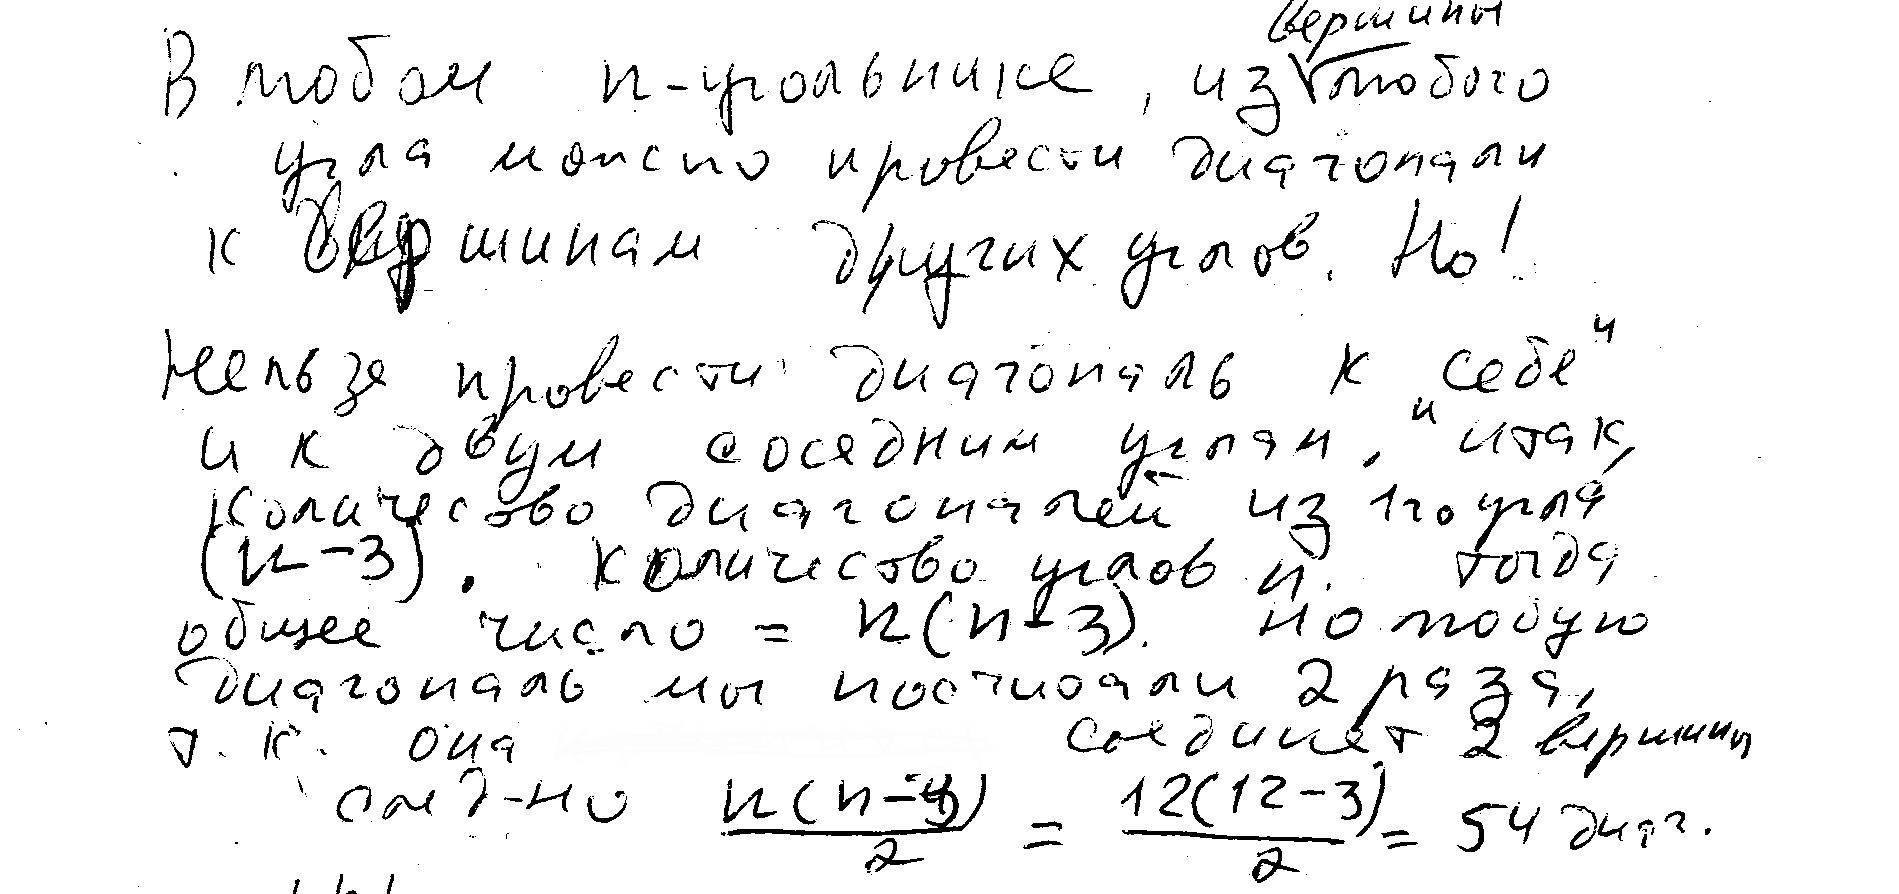 вершины
В любом n-угольнике, из любого
угла можно провести диагонали
к вершинам других углов. Но!
Нельзя провести диагональ к "себе"
и к двум соседним углам. "Итак,
количество диагоналей из 1го угла
(n-3). Количество углов n. Тогда
общее число = n(n-3). Но любую
диагональ мы посчитали 2 раза,
т.к. она соединяет 2 вершины
след-но n(n-3)/2 = 12(12-3)/2 = 54 диаг.